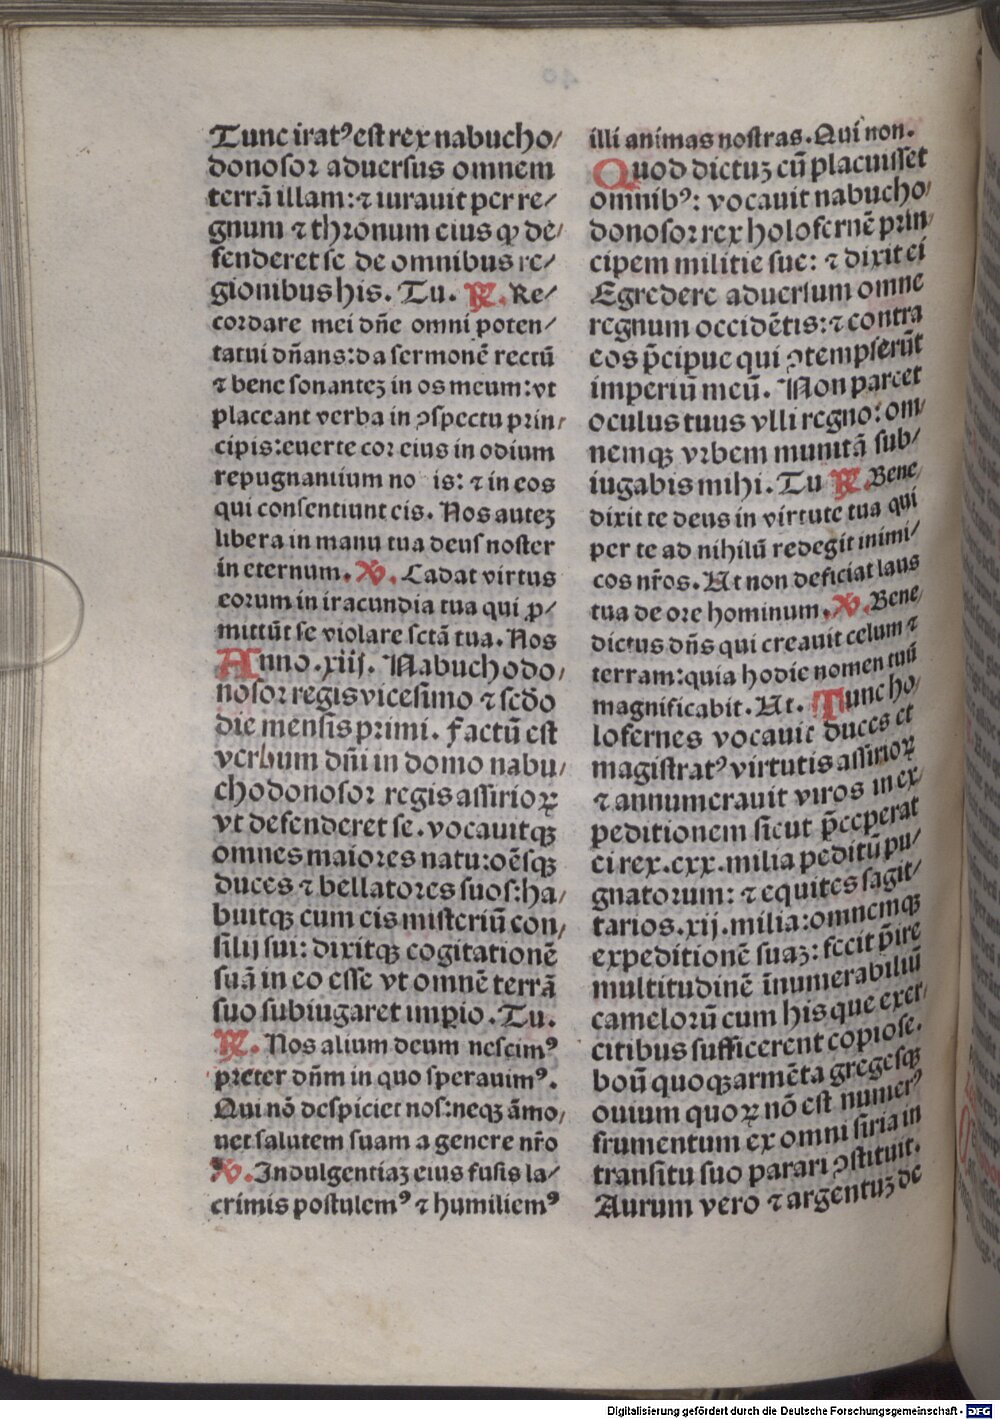 Tunc irat⁹ est rex nabucho/
donosor aduersus omnem
terrā illam: ⁊ iurauit per re/
gnum ⁊ thronum eius ꝙ de/
fenderet se de omnibus re/
gionibus his. Tu. ℟. Re/
cordare mei dn̄e omni poten/
tatui dn̄ans: da sermonē rectū
⁊ bene sonanteꝫ in os meum: vt
placeant verba in ꝯspectu prin/
cipis: euerte cor eius in odium
repugnantium no is: ⁊ in eos
qui consentiunt eis. Nos auteꝫ
libera in manu tua deus noster
in eternum. ℣. Cadat virtus
eorum in iracundia tua qui ꝓ/
mittūt se violare sctā tua. Nos
Anno .xiij. Nabuchodo/
nosor regis vicesimo ⁊ scd̄o
die mensis primi. factū est
verbum dn̄i in domo nabu/
chodonosor regis assirioꝝ
vt defenderet se. vocauitqꝫ
omnes maiores natu: oēsqꝫ
duces ⁊ bellatores suos: ha/
buitqꝫ cum eis misteriū con/
silij sui: dixitqꝫ cogitationē
suā in eo esse vt omnē terrā
suo subiugaret imꝑio. Tu.
℟. Nos alium deum nescim⁹
preter dn̄m in quo sperauim⁹.
Qui nō despiciet nos: neqꝫ āmo/
uet salutem suam a genere nr̄o
℣. Indulgentiaꝫ eius fusis la/
crimis postulem⁹ ⁊ humiliem⁹
illi animas nostras. Qui non.
Quod dictuꝫ cū placuisset
omnib⁹: vocauit nabucho/
donosor rex holofernē prin/
cipem militie sue: ⁊ dixit ei
Egredere aduersum omne
regnum occidētis: ⁊ contra
eos p̄cipue qui ꝯtempserūt
imperiū meū. Non parcet
oculus tuus vlli regno: om/
nemqꝫ vrbem munitā sub/
iugabis mihi. Tu ℟. Bene/
dixit te deus in virtute tua qui
per te ad nihilū redegit inimi/
cos nr̄os. Ut non deficiat laus
tua de ore hominum. ℣. Bene/
dictus dn̄s qui creauit celum ⁊
terram: quia hodie nomen tuū
magnificabit. Ut. Tunc ho/
lofernes vocauit duces et
magistrat⁹ virtutis assirioꝝ
⁊ annumerauit viros in ex/
peditionem sicut p̄ceperat
ei rex .cxx. milia peditū pu/
gnatorum: ⁊ equites sagit/
tarios .xij. milia: omnemqꝫ
expeditionē suaꝫ: fecit p̄ire
multitudinē īnumerabiliū
camelorū cum his que exer/
citibus sufficerent copiose.
boū quoqꝫ armēta gregesqꝫ
ouium quoꝝ nō est numer⁹
frumentum ex omni siria in
transitu suo parari ꝯstituit.
Aurum vero ⁊ argentuꝫ de
Digitalisierung gefördert durch die Deutsche Forschungsgemeinschaft - DFG